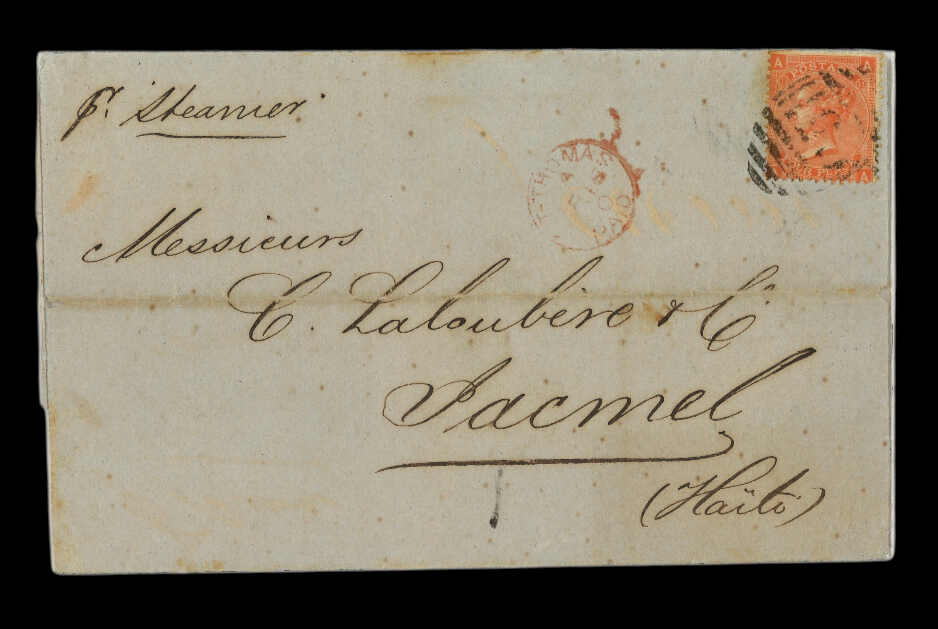 pr. Steamer
A A
POSTAGE
A
ST THOMAS
PAID
Messieurs
C. Laloubère & Co
Jacmel
(Haïti)